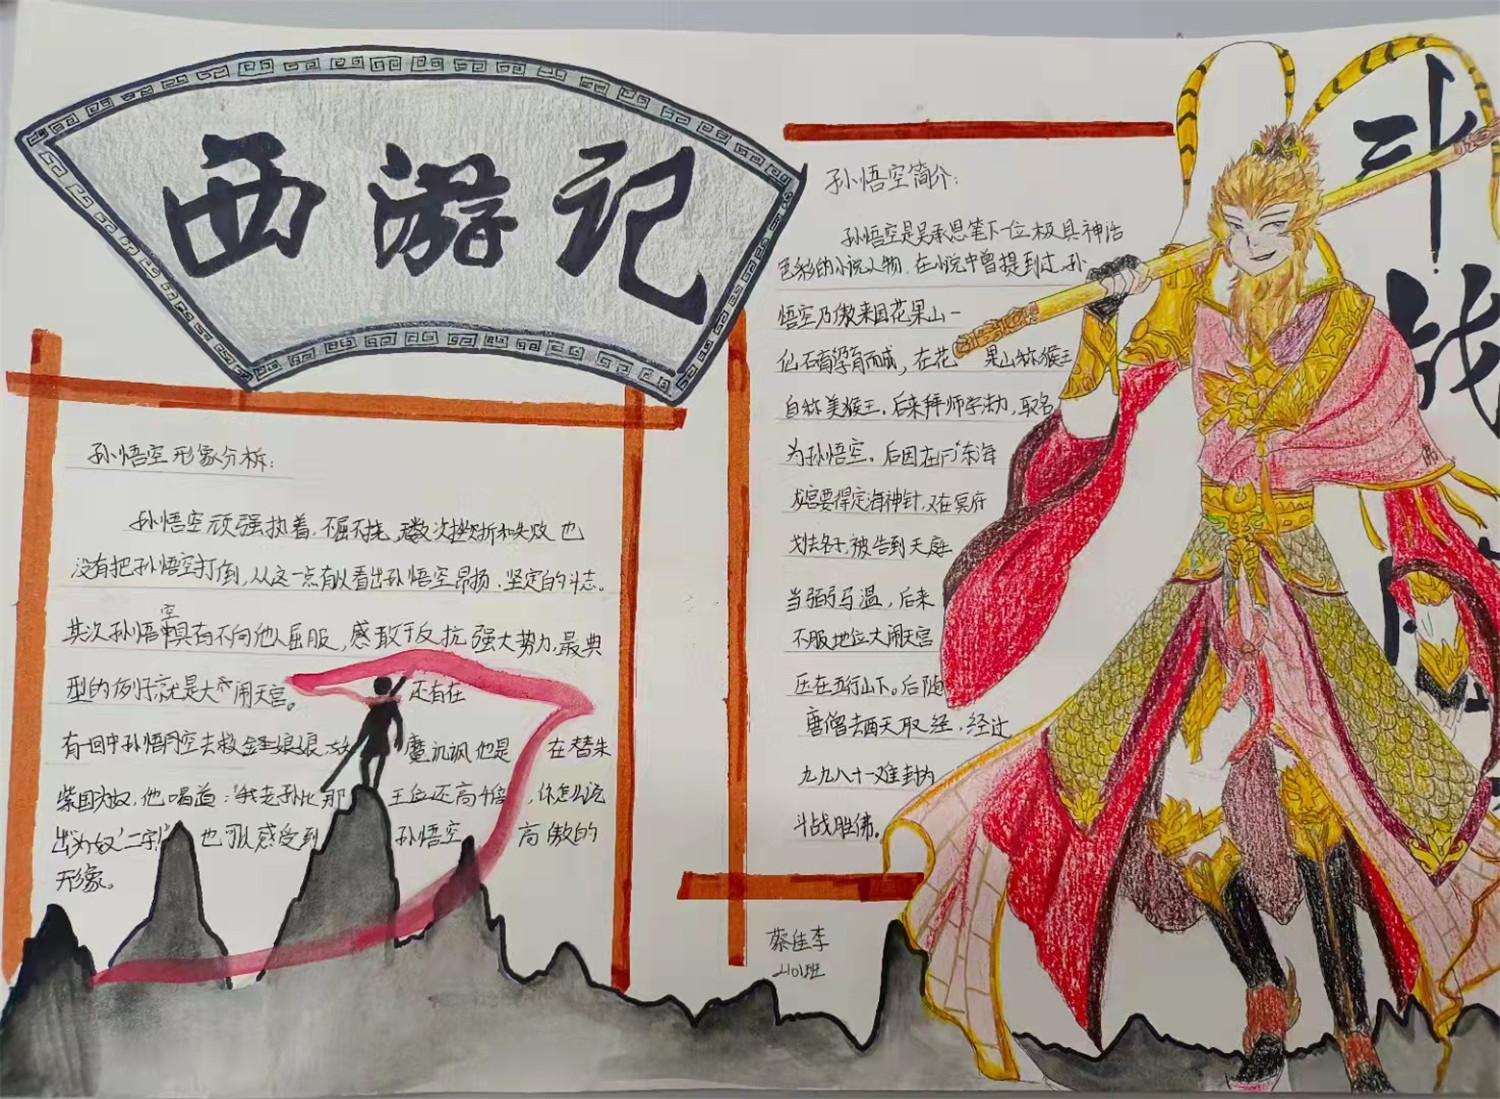 西游记
孙悟空形象分析:
孙悟空顽强执着,不屈不挠,无数次挫折和失败也
没有把孙悟空打倒,从这一点有以看出孙悟空昂扬、坚定的斗志。
其次孙悟空具有不向他人屈服,感敢于反抗强大势力,最典
型的例子就是大闹天宫。还有在
有一回中孙悟空去救金圣娘娘 魔讥讽他是 在替朱
紫国为奴,他喝道:"我老孙比那 王位还高千倍 ,你怎么说
出'为奴'二字" 也可以感受到 孙悟空 高傲的
形象。
孙悟空简介:
孙悟空是吴承恩笔下一位极具神话
色彩的小说人物,在小说中曾提到过,孙
悟空乃傲来国花果山一
仙石孕育而成,在花 果山称猴王
自称美猴王,后来拜师学法力,取名
为孙悟空。后因在东海
龙宫要得定海神针,又在冥府
划去名子,被告到天庭
当弼马温,后来
不服地位大闹天宫
压在五行山下。后随
唐僧去西天取经,经过
九九八十一难封为
斗战胜佛。
蔡佳李
2101班
斗战